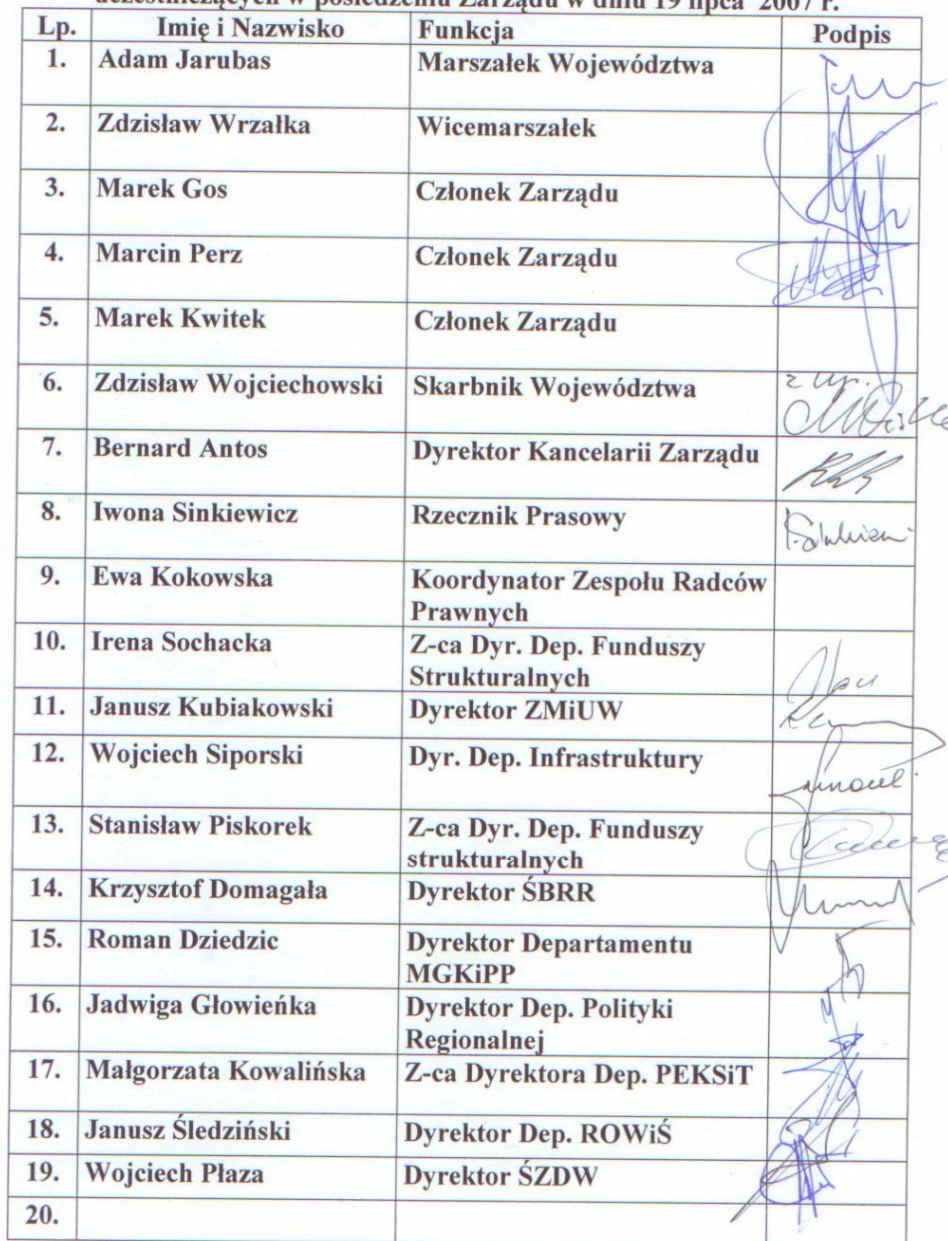 uczestniczących w posiedzeniu Zarządu w dniu 19 lipca 2007 r.
Lp. Imię i Nazwisko Funkcja Podpis
1. Adam Jarubas Marszałek Województwa
2. Zdzisław Wrzałka Wicemarszałek
3. Marek Gos Członek Zarządu
4. Marcin Perz Członek Zarządu
5. Marek Kwitek Członek Zarządu
6. Zdzisław Wojciechowski Skarbnik Województwa z up.
7. Bernard Antos Dyrektor Kancelarii Zarządu
8. Iwona Sinkiewicz Rzecznik Prasowy
9. Ewa Kokowska Koordynator Zespołu Radców
Prawnych
10. Irena Sochacka Z-ca Dyr. Dep. Funduszy
Strukturalnych
11. Janusz Kubiakowski Dyrektor ZMiUW
12. Wojciech Siporski Dyr. Dep. Infrastruktury
13. Stanisław Piskorek Z-ca Dyr. Dep. Funduszy
strukturalnych
14. Krzysztof Domagała Dyrektor ŚBRR
15. Roman Dziedzic Dyrektor Departamentu
MGKiPP
16. Jadwiga Głowieńka Dyrektor Dep. Polityki
Regionalnej
17. Małgorzata Kowalińska Z-ca Dyrektora Dep. PEKSiT
18. Janusz Śledziński Dyrektor Dep. ROWiŚ
19. Wojciech Płaza Dyrektor ŚZDW
20.